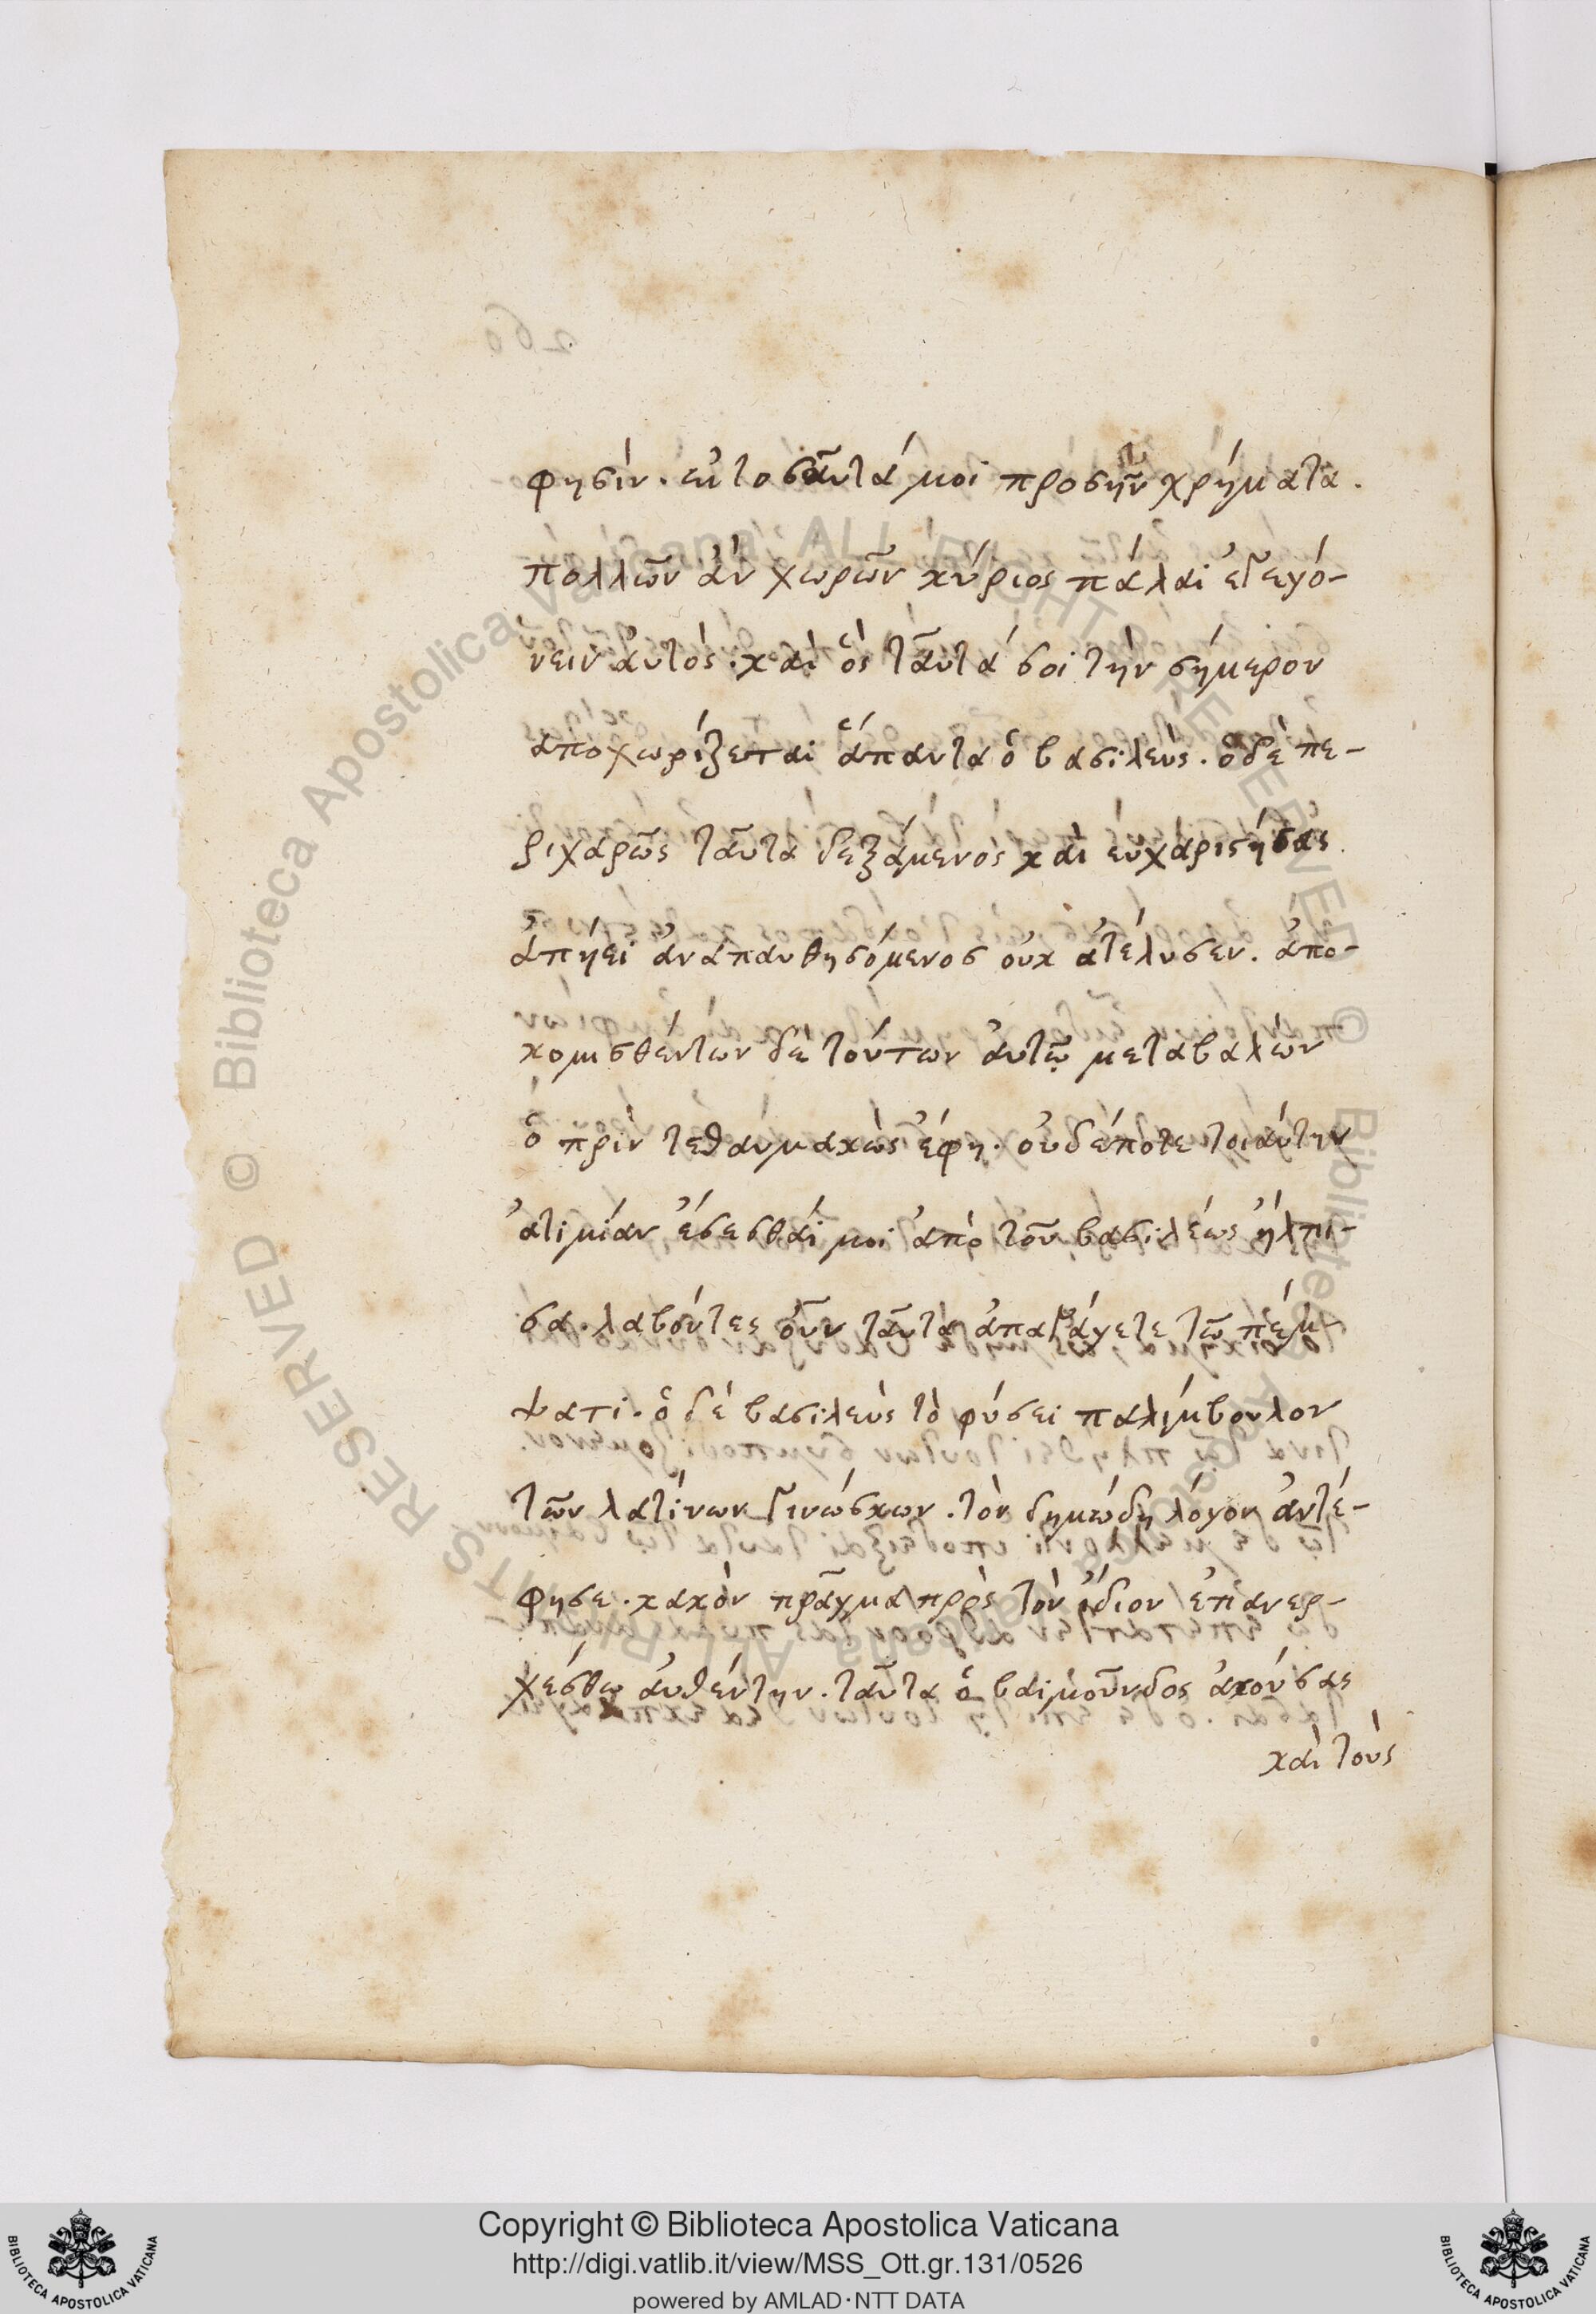 φησίν. εἰ τοσαῦτά μοι προσῆν χρήματα.
πολλῶν ἂν χωρῶν κύριος πάλαι ἐγεγό-
νειν αὐτός. καὶ ὃς ταῦτά σοι τὴν σήμερον
ἀποχωρίζεται ἅπαντα ὁ βασιλεύς. ὁ δὲ πε-
ριχαρῶς ταῦτα δεξάμενος καὶ εὐχαριστήσας
ἀπῄει ἀναπαυθησόμενος οὐκ ἀτέλυσεν. ἀπο-
κομισθέντων δὲ τούτων αὐτῷ μεταβαλὼν
ὁ πρὶν τεθαυμακὼς ἔφη. οὐδέποτε τοιαύτην
ἀτιμίαν ἔσεσθαί μοι ἀπὸ τοῦ βασιλέως ἤλπι-
σα. λαβόντες οὖν ταῦτα ἀπαγάγετε τῷ πέμ-
ψατι. ὁ δὲ βασιλεὺς τὸ φύσει παλίμβουλον
τῶν λατίνων γινώσκων. τὸν δημώδη λόγον ἀντέ-
φησε. κακὸν πρᾶγμα πρὸς τὸν ἴδιον ἐπανερ-
χέσθω αὐθέντην. ταῦτα ὁ βαϊμοῦνδος ἀκούσας
καὶ τοὺς
Copyright © Biblioteca Apostolica Vaticana
http://digi.vatlib.it/view/MSS_Ott.gr.131/0526
powered by AMLAD·NTT DATA
BIBLIOTECA APOSTOLICA VATICANA
BIBLIOTECA APOSTOLICA VATICANA